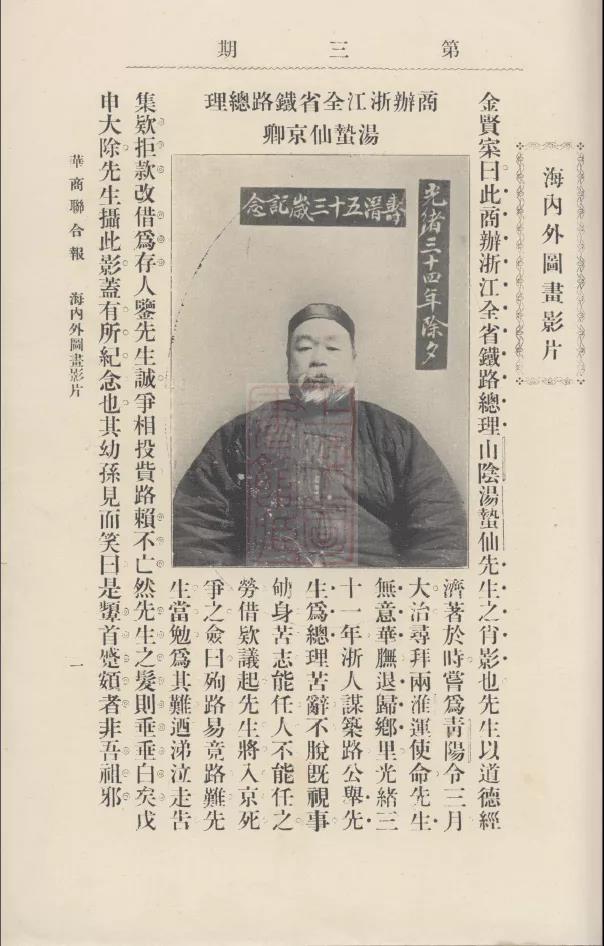 第三期
海內外圖畫影片
金賢寀曰此商辦浙江全省鐵路總理山陰湯蟄仙先生之肖影也先生以道德經
商辦浙江全省鐵路總理
湯蟄仙京卿
光緒三十四年除夕
壽潛五十三歲記念
濟著於時嘗爲靑陽令三月
大治尋拜兩淮運使命先生
無意華膴退歸鄕里光緒三
十一年浙人謀築路公舉先
生爲總理苦辭不脫旣視事
劬身苦志能任人不能任之
勞借欵議起先生將入京死
爭之僉曰殉路易竟路難先
生當勉爲其難迺涕泣走告
集欵拒款改借爲存人鑒先生誠爭相投貲路賴不亡然先生之髮則垂垂白矣戊
申大除先生攝此影蓋有所紀念也其幼孫見而笑曰是顰首蹙頞者非吾祖邪
華商聯合報 海內外圖畫影片 一